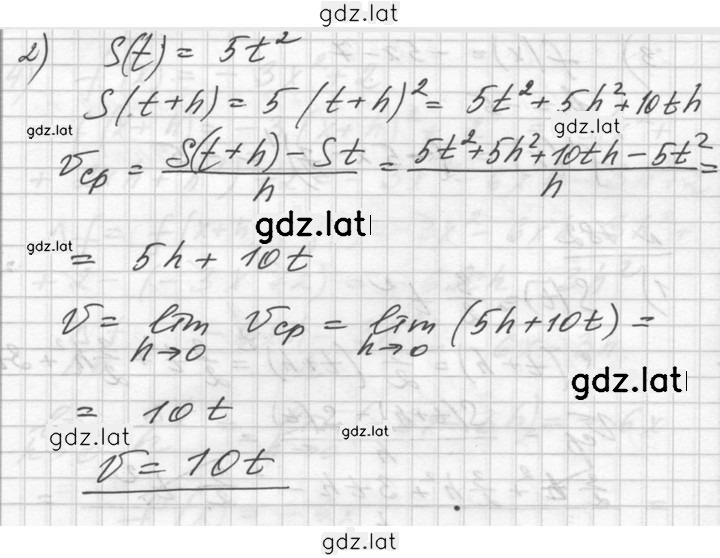 gdz.lat
2) S(t) = 5t²
S(t+h) = 5(t+h)² = 5t²+5h²+10th
gdz.lat gdz.lat
Vср = S(t+h) – St / h = 5t²+5h²+10th – 5t² / h =
gdz.lat
gdz.lat
= 5h + 10t
V = lim h→0 Vср = lim h→0 (5h+10t) =
gdz.lat
= 10t
gdz.lat gdz.lat
V = 10t
gdz.lat